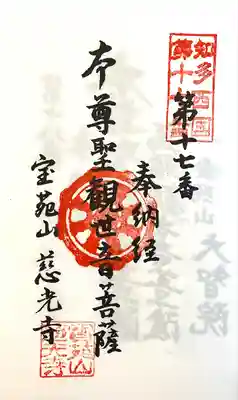 知多西国
第十七
第十七番
奉納経
本尊聖観世音菩薩
宝苑山 慈光寺
大智院